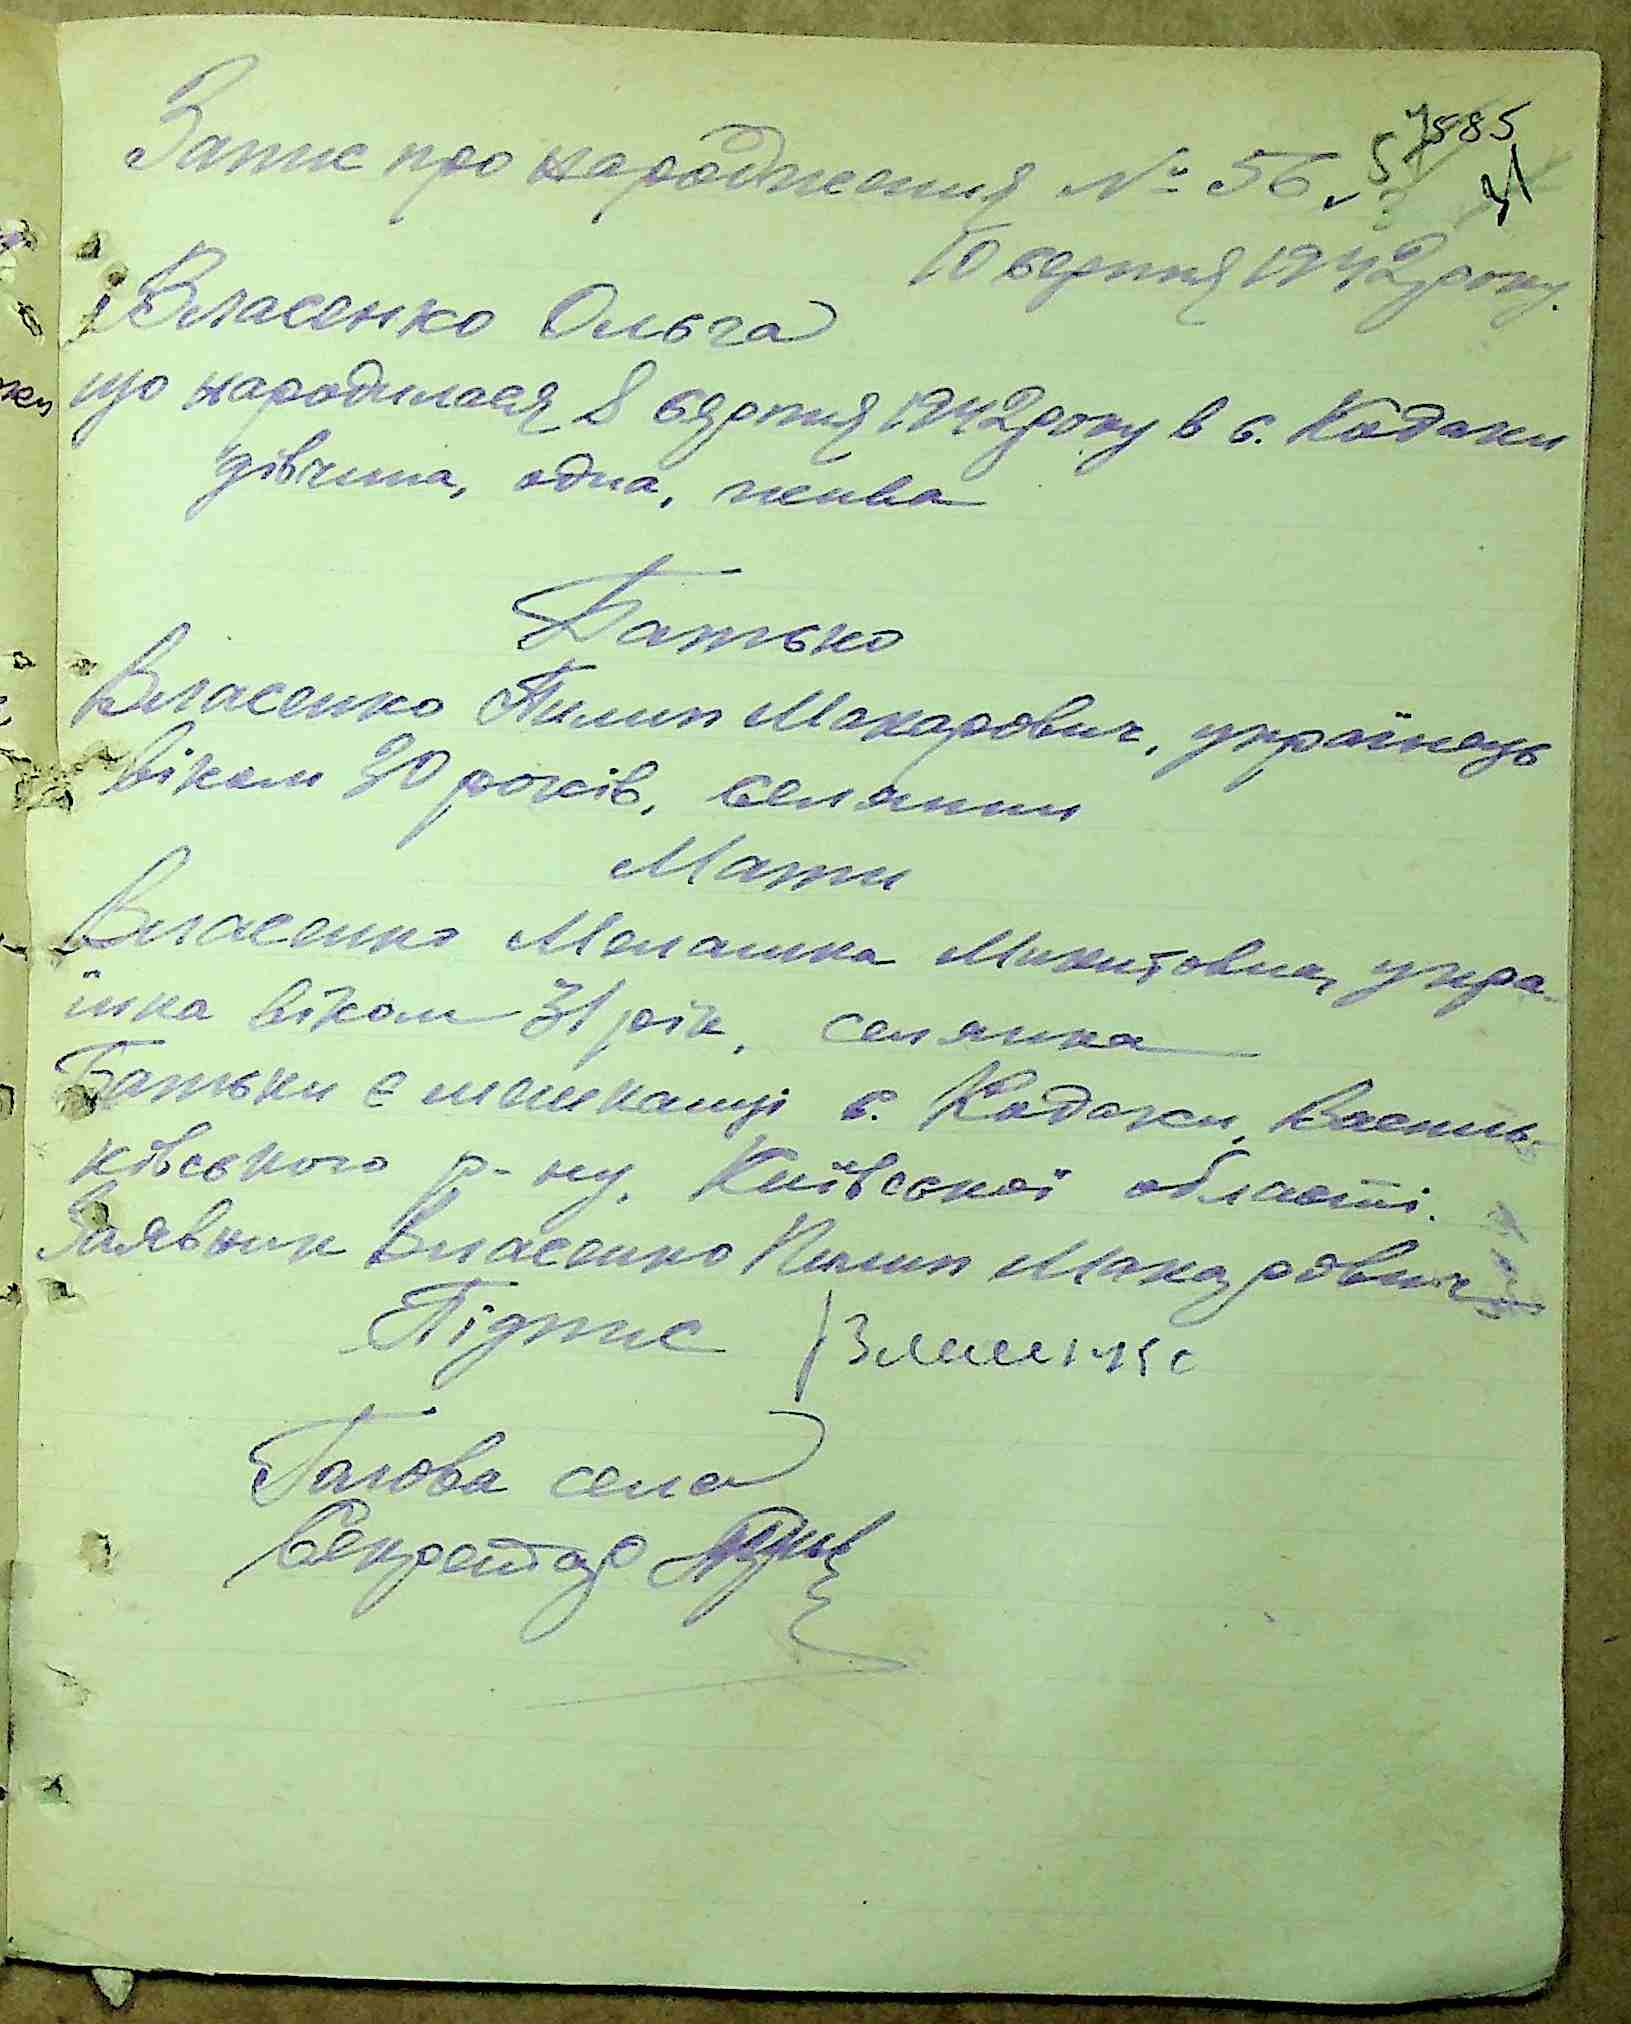 Запис про народження № 56.
10 серпня 1942 року.
Власенко Ольга
що народилася 8 серпня 1942 року в с. Кодаки
дівчина, одна, жива
Батько
Власенко Пилип Макарович, українець
віком 30 років, селянин
Мати
Власенко Мелашка Микитовна, укра-
їнка віком 31 рік, селянка
Батьки є мешканці с. Кодаки, Василь-
ківського р-ну, Київської області.
Заявник Власенко Пилип Макарович
Підпис
Голова села
Секретар